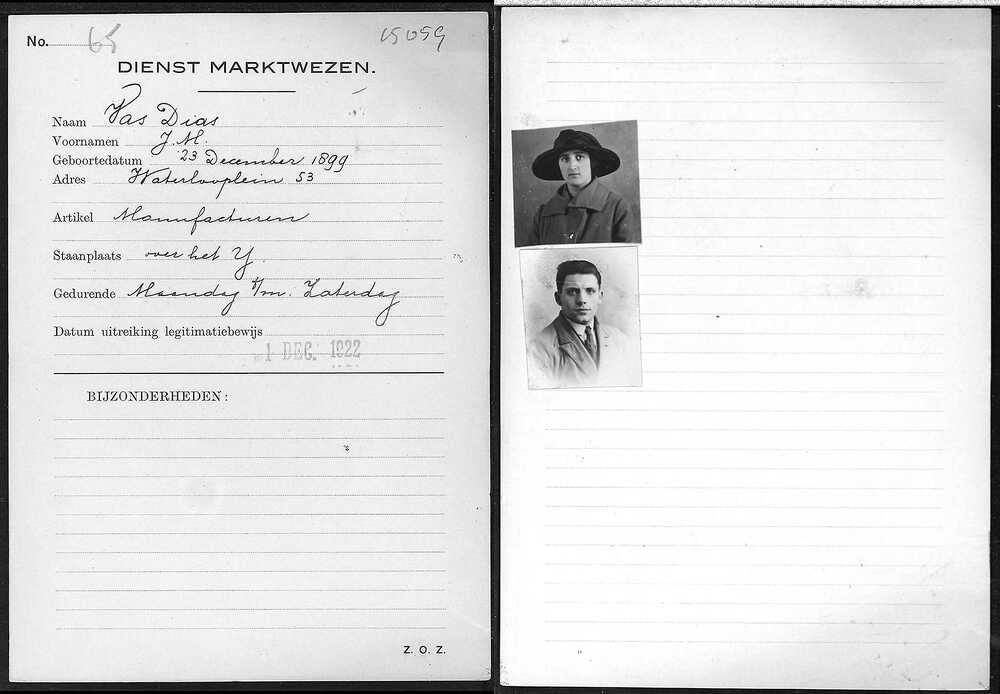 No. 65 15059
DIENST MARKTWEZEN.
Naam Vas Dias
Voornamen J. M.
Geboortedatum 23 December 1899
Adres Waterlooplein 53
Artikel Manufacturen
Staanplaats over het Y.
Gedurende Maandag t/m. Zaterdag
Datum uitreiking legitimatiebewijs
1 DEC. 1922
BIJZONDERHEDEN:
Z. O. Z.